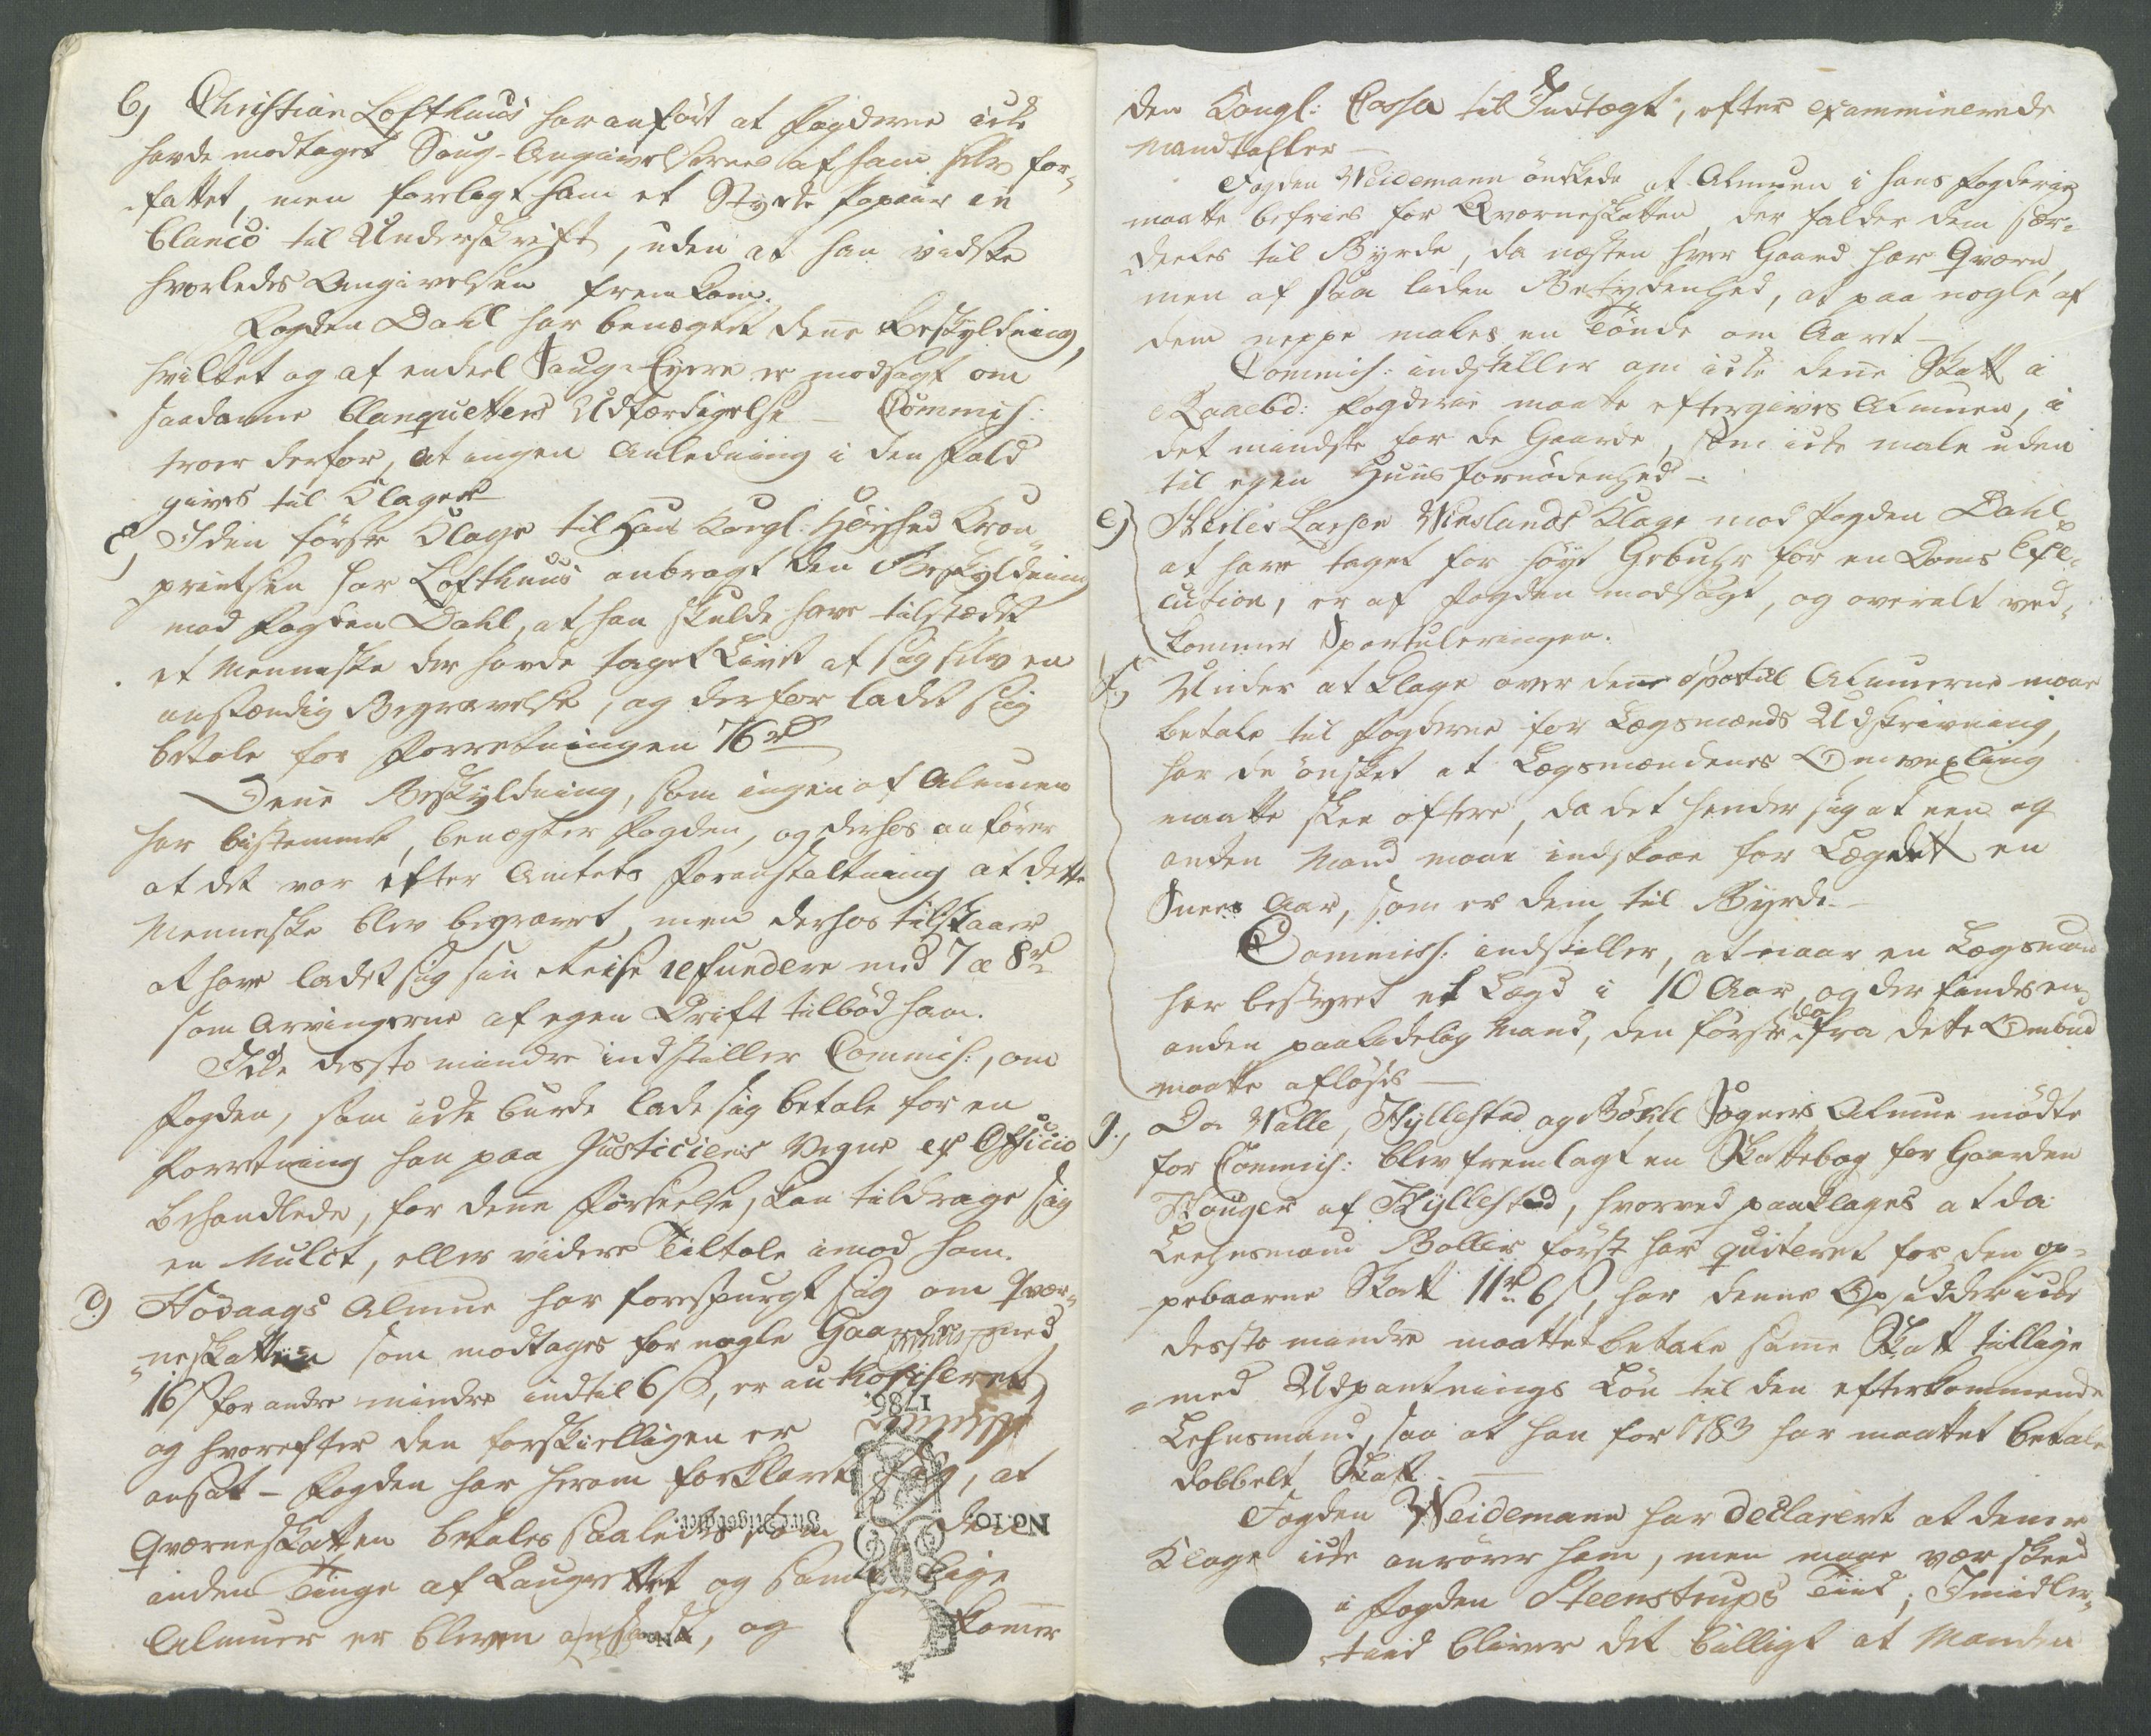 b) Christian Lofthuus har anført at Fogderne icke
havde modtaget Saug-Angivelserne af ham selv for-
fattet, men forelagt ham et Stycke Papiir in
blanco til Underskrift, uden at han vidste
hvorledes Angivelsen fremkom.
Fogden Dahl har benægtet denne Beskyldning,
hvilket og af endeel Saug-Eyere er modsagt om
saadanne blanquetters Udfærdigelse – Commis:
troer derfor, at ingen Anledning i den Fald
gives til Klager
c) I den første Klage til Hans Kongl: Høyhed Cron-
printsen har Lofthuus anbragt den Beskyldning
mod Fogden Dahl, at han skulde have tilstædet
et Menneske der havde taget Livet af sig selv en
anstændig Begravelse, og derfor ladet sig
betale for Forretningen 76 rd
Denne Beskyldning, som ingen af Almuen
har bistemmet, benægter Fogden, og derhos anfører
at det var efter Amtets Foranstaltning at dette
Menneske blev begravet, men derhos tilstaaer
at have ladet sig sin Reise refundere med 7 a 8 rd
som Arvingerne af egen Drift tilbød ham.
Icke desto mindre indstiller Commis:, om
Fogden, som icke burde lade sig betale for en
Forretning han paa Justiciens Vegne ex Officio
behandlede, for denne Forseelse, kan tildrage sig
en Mulct, eller videre Tiltale imod ham.
d) Høvaags Almue har forespurgt sig om Qvær-
neskatten som modtages for nogle Gaarde med
16 s for andre mindre indtil 6 s, er authoriseret
og hvorefter den forskielligen er
ansat – Fogden har herom forklaret sig, at
Qværneskatten betales saaledes som den
anden Tinge af Laugrettet og samtlige
Almuer er bleven ansat, og kommer
1786.
No. 10.
den Kongl: Cassa til Indtægt, efter examinerede
Mandtaller –
Fogden Weidemann ønskede at Almuen i hans Fogderie
maatte befries for Qværneskatten, der falder dem sær-
deeles til Byrde, da næsten hver Gaard har Qværn,
men af saa liden Betydenhed, at paa nogle af
dem neppe males en Tønde om Aaret –
Commis: indstiller om icke denne Skatt i
Raaebd: Fogderie maatte eftergives Almuen, i
det mindste for de Gaarde, som icke male uden
til egen Huus Fornødenhed –.
e) Larsen Klage mod Fogden Dahl
at have taget for høyt Gebuhr for en Doms Exe-
cution, er af Fogden modsagt, og overalt ved-
kommer Sportuleringen.
f.) Under at klage over den Sportul Almuerne maae
betale til Fogderne for Lægsmænds Udskrivning,
har de ønsket at Lægsmændenes Omvexling
maatte skee oftere, da det hender sig at een og
anden Mand maae indstaae for Lægdet en
Snees Aar, som er dem til Byrde –
Commiss: indstiller, at naar en Lægsmand
har bestyret et Lægd i 10 Aar, og der fandtes en
anden paalidelig Mand, den første da fra dette Ombud
maatte afløses –
g.) Da Walle, Hyllestad og Bøyle Sogners Almue mødte
for Commis: blev fremlagt en Skattebog for Gaarden
af Hyllestad, hvorved paaklages at da
Leehnsmand først har quiteret for den op-
pebaarne Skatt 11 rd 6 s, har denne Opsidder icke
desto mindre maattet betale samme Skatt tillige
med Udpantnings Løn til den efterkommende
Lehnsmand, saa at han for 1783 har maattet betale
dobbelt Skatt. –
Fogden Weidemann har declareret at denne
Klage icke anrører ham, men maae være skeed
i Fogden Steenstrups Tiid; Imidler-
tiid bliver det billigt at Manden